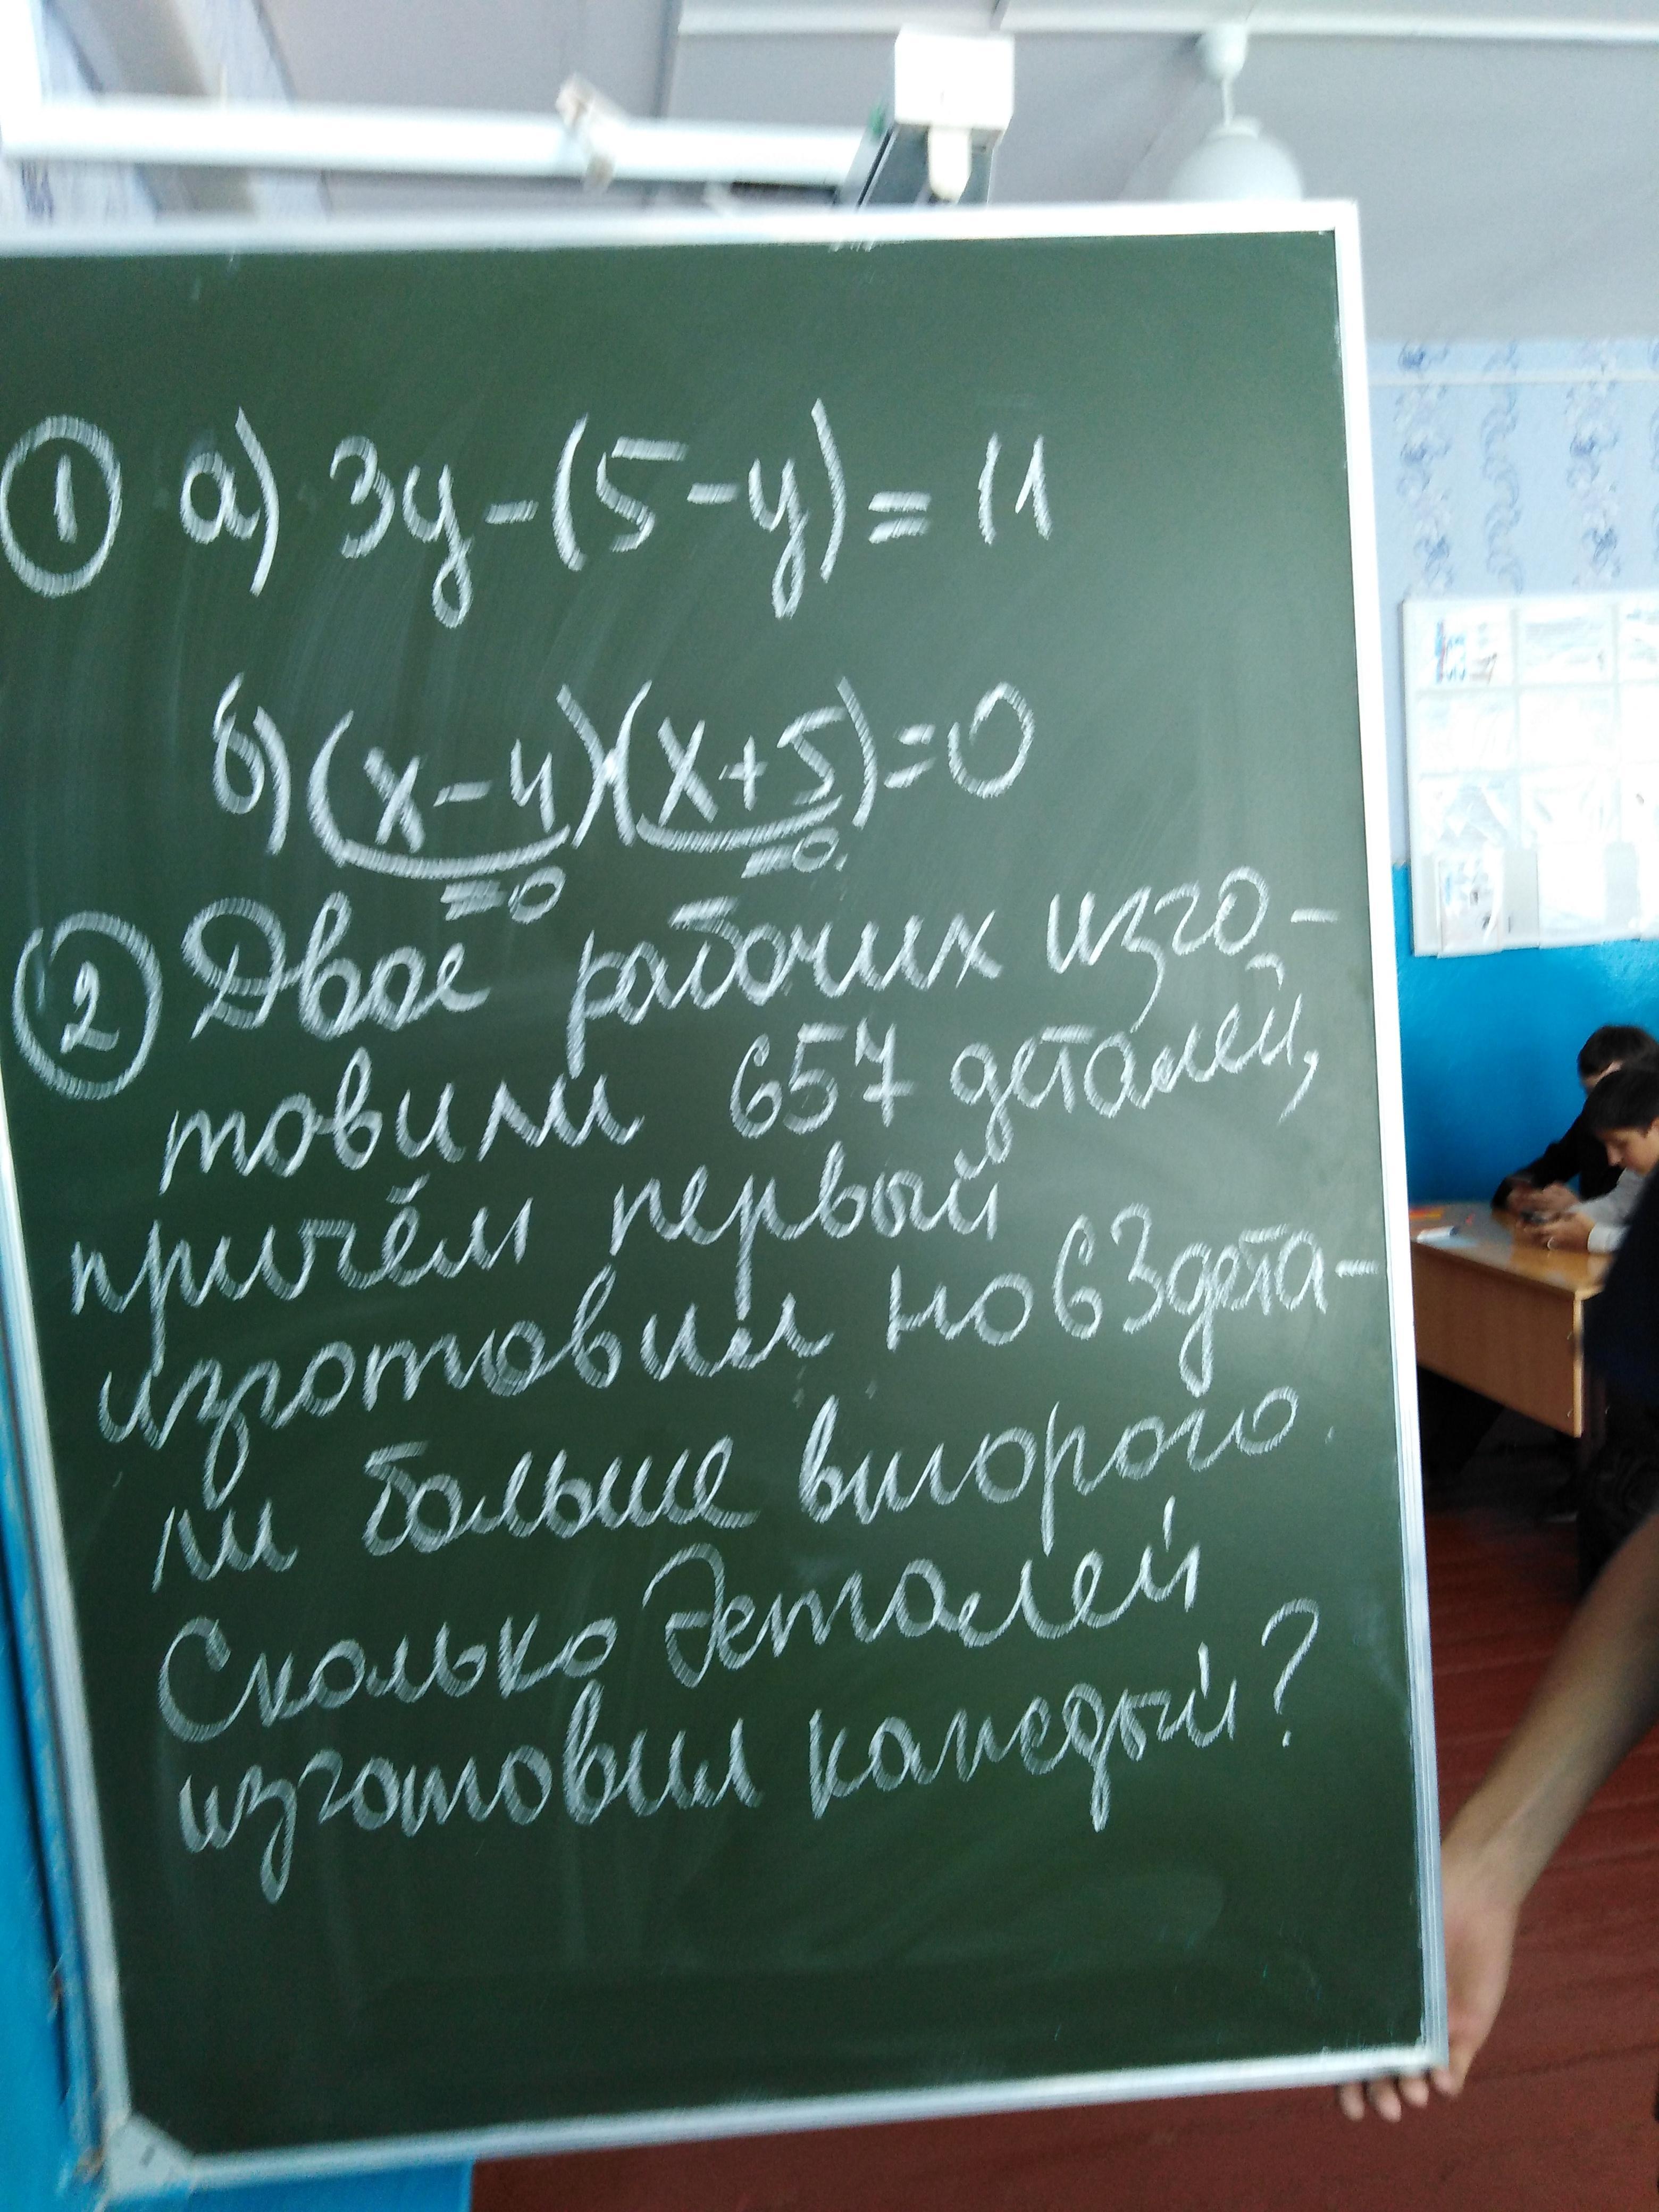 ① а) 3y-(5-y)=11
б) (x-4)(x+5)=0
=0 =0.
② Двое рабочих изго-
товили 657 деталей,
причём первый
изготовил на 63 дета-
ли больше второго.
Сколько деталей
изготовил каждый?